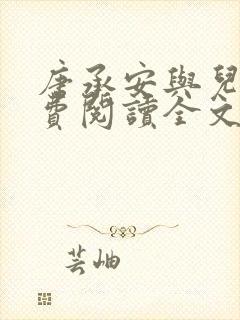 唐承安與兒
費閱讀全文
芸岫